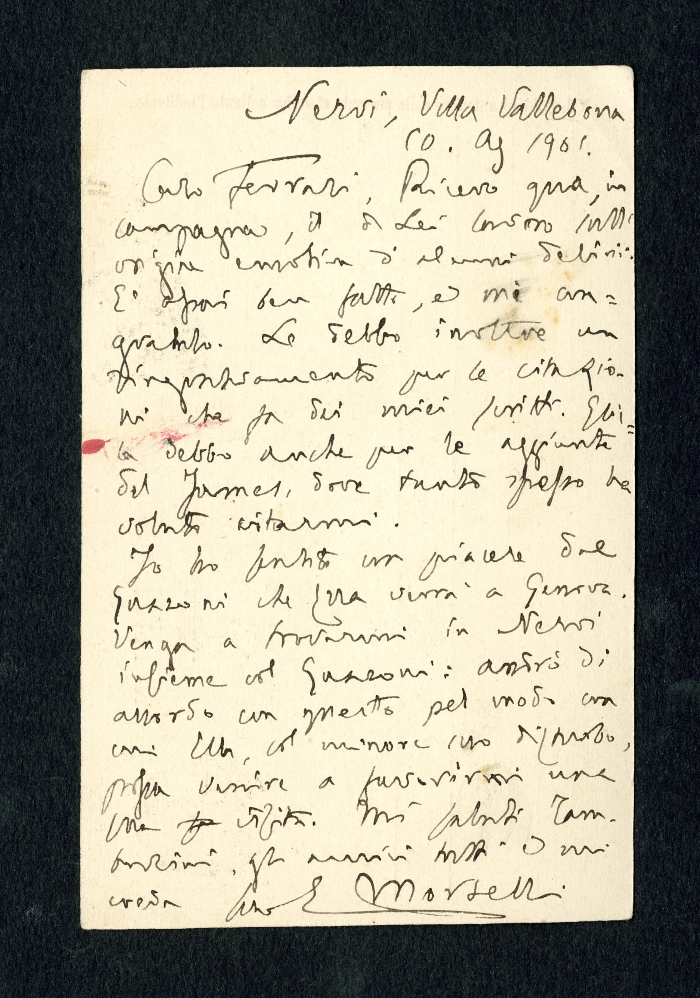 Nervi, Villa Vallebona
10. Ag 1901.
Caro Ferrari, Ricevo qua, in
campagna, il di Lei lavoro sull'
origine emotiva d'alcuni delirii.
E' assai ben fatto, e mi con=
gratulo. Le debbo inoltre un
ringraziamento per le citazio-
ni che fa dei miei scritti. Glie=
lo debbo anche per le aggiunte
del James, dove tanto spesso ha
voluto citarmi.
Io ho sentito con piacere dal
Guazzoni che Ella verrà a Genova.
Venga a trovarmi in Nervi
insieme col Guazzoni: andrò di
accordo con questo pel modo con
cui Ella, col minore suo disturbo,
possa venire a favorirmi una
sua visita. Mi saluti Tam-
burini, gli amici tutti e mi
creda suo E Morselli